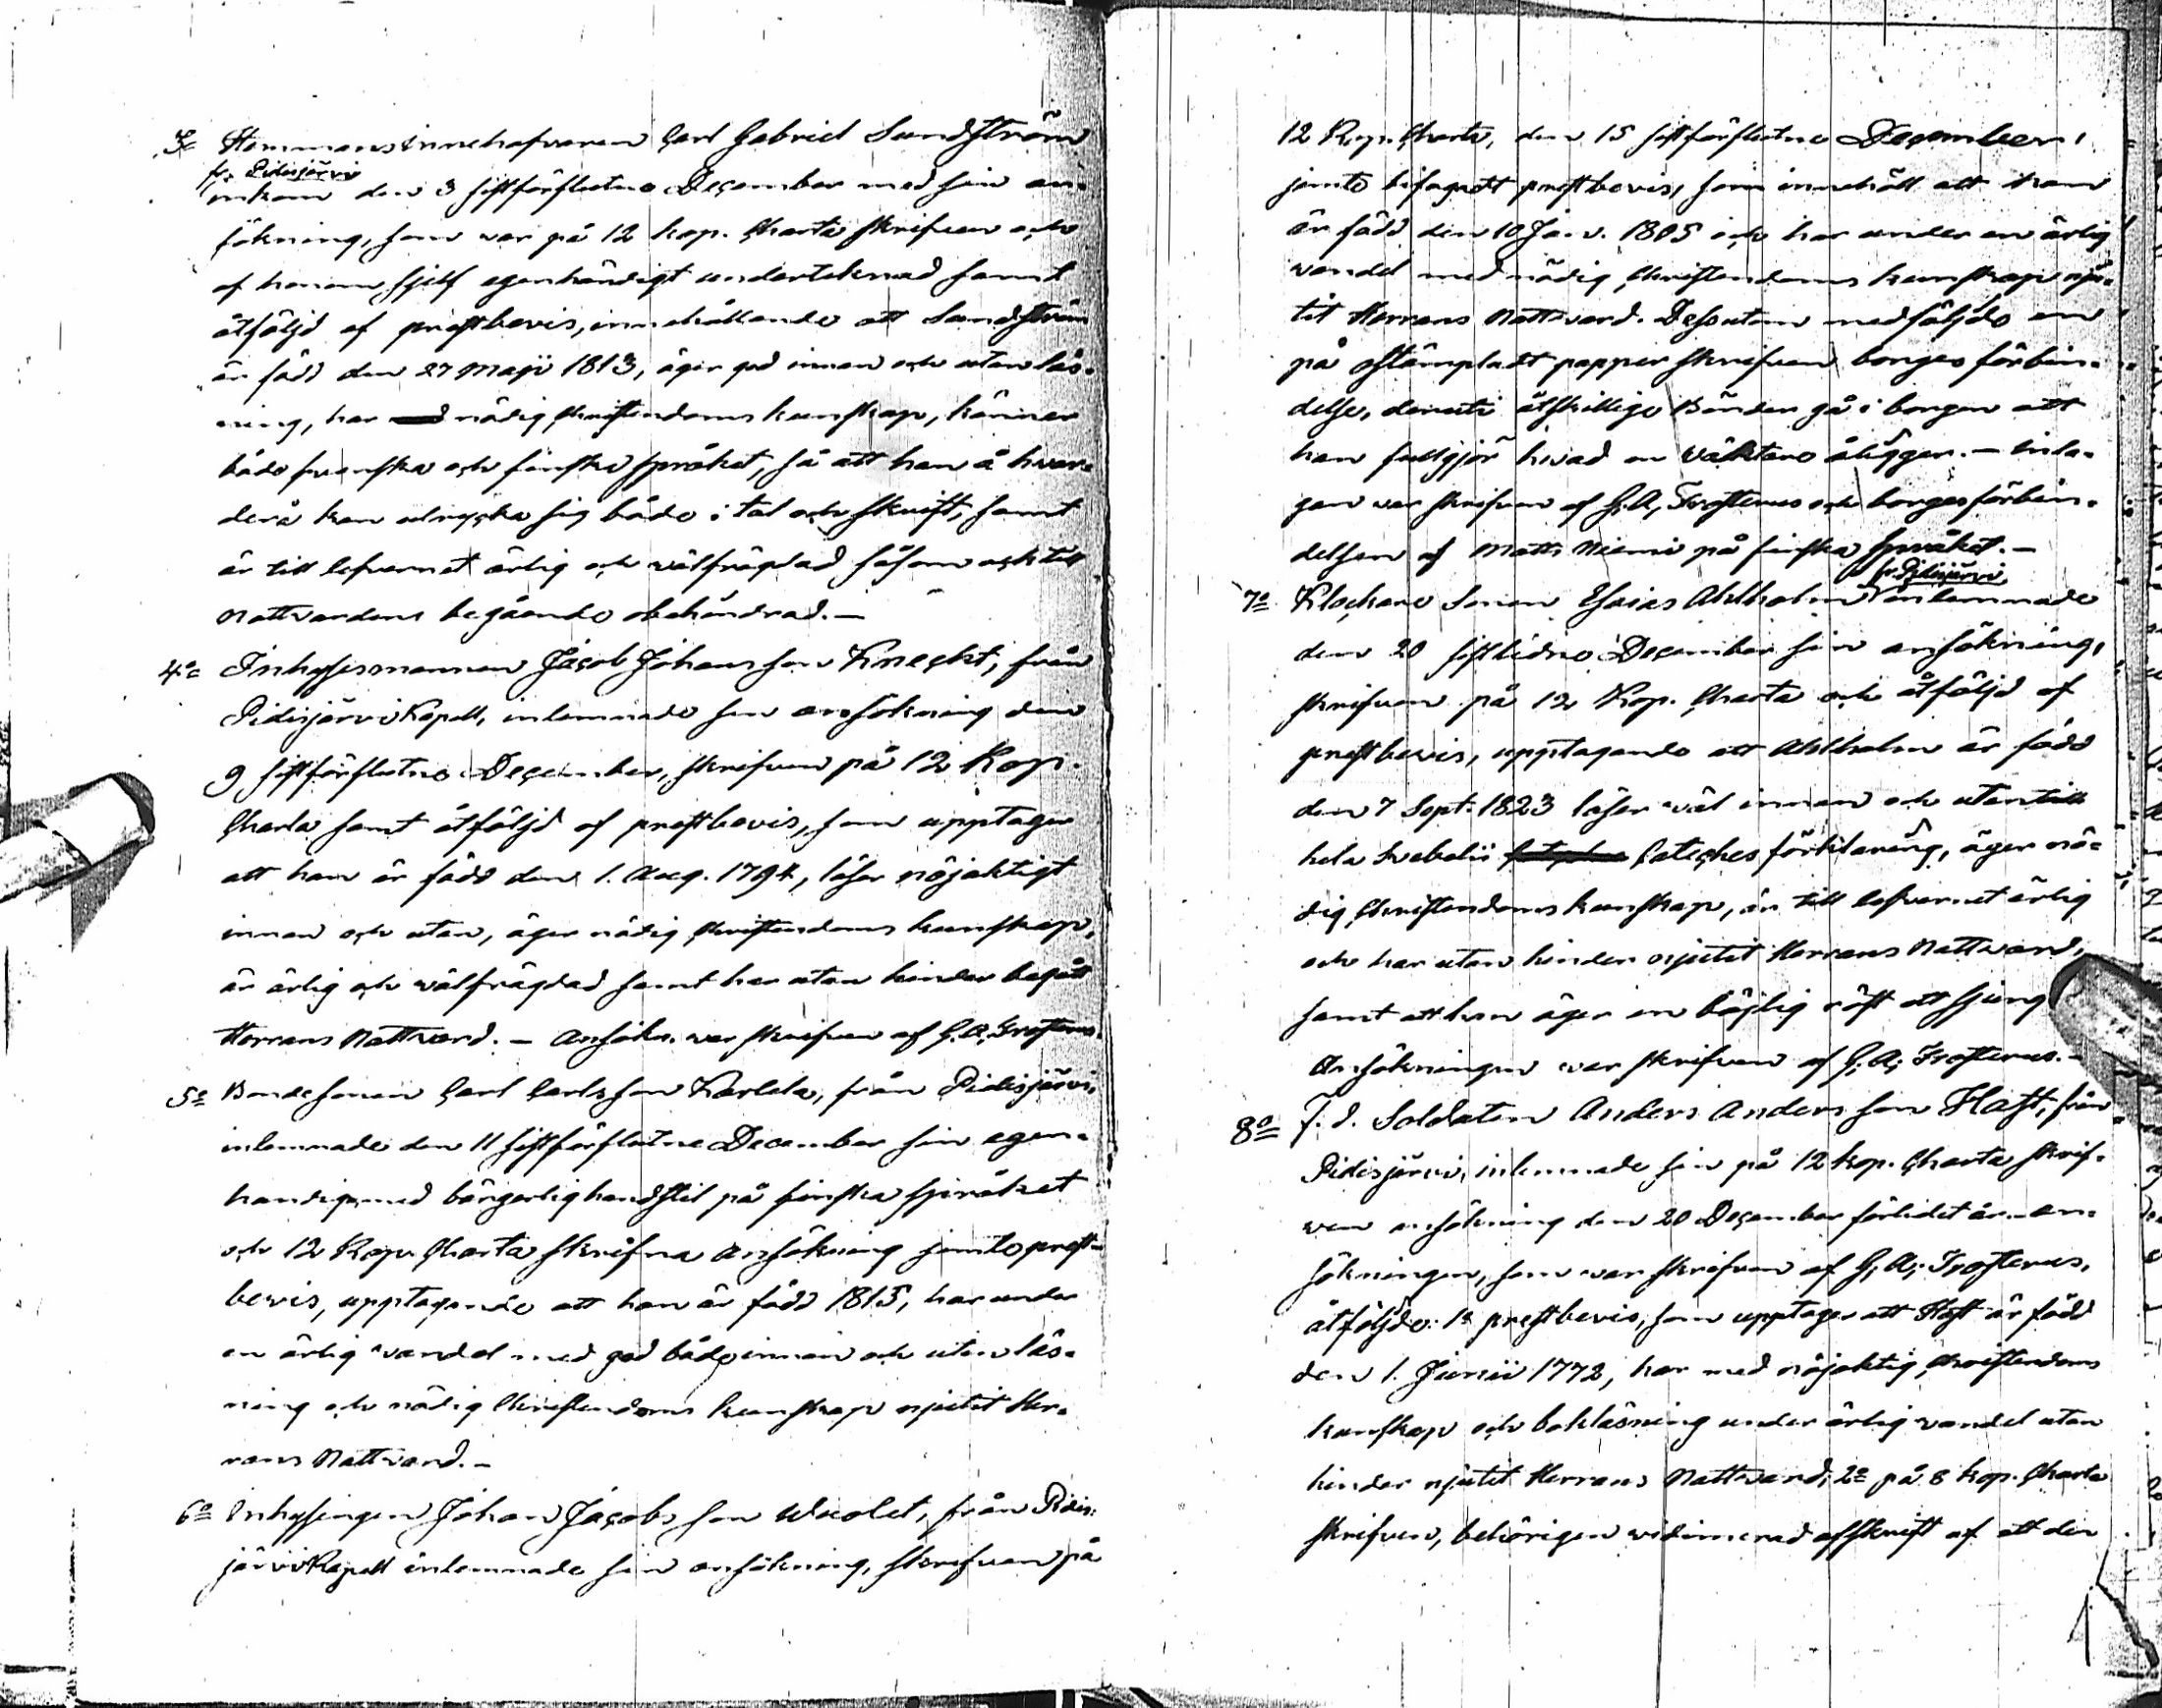 3o Hemmansinnehafvaren Carl Gabriel Sundström
fr. Pidisjärvi
inkom den 3 sistförflutne December med sin an-
sökning, som war på 12 kop. Charta skrifven och
af honom sjelf egenhändigt undertecknad samt
åtföljd af prestbevis, innehållande att Sundström
är född den 27 Maji 1813, äger god innan och utan läs-
ning, har nödig Christendoms kunskap, känner
både svenska och finska språket, så att han å hvar-
dera kan utrycka sig både i tal och skrift, samt
är till lefvernet ärlig och wälfrägdad såsom ock till
Nattvardens begående obehindrad. —
4o Inhysesmannen Jacob Johansson Knecht, från
Pidisjärvi Kapell, inlemnade sin ansökning den
9 sistförflutne December, skrifven på 12 Kop.
Charta samt åtföljd af prestbevis, som upptager
att han är född den 1. Aug. 1794, läser nöjaktigt
innan och utan, äger nödig Christendoms kunskap,
är ärlig och wälfrägdad samt har utan hinder begått
Herrans Nattward. — Ansökn. war skrifven af G. A. Frosterus.
5o Bondesonen Carl Carlsson Karlela, från Pidisjärvi,
inlemnade den 11 sistförflutne December sin egen-
handigt med börgerlig handstil på finska språket
och 12 Kop. Charta skrifna ansökning jemte prest-
bevis, upptagande att han är född 1815, har under
en ärlig vandel med god både innan och utan läs-
ning och nödig Christendoms kunskap njutit Her-
rans Nattvard. —
6o Inhysingen Johan Jacobsson Wuolet, från Pidis-
järvi Kapell inlemnade sin ansökning, skrifven på
12 Kop. Charta, den 15 sistförflutne December,
jemte bifogadt prestbevis, som innehåll att han
är född den 10 Jan. 1805 och har under en ärlig
vandel med nödig Christendoms kunskap nju-
tit Herrans Nattvard. Dessutom medföljde en
på ostämpladt papper skrifven borgesförbin-
delse, deruti åtskillige Bönder gå i borgen att
han fullgjör hvad en Wäktare åligger. — Inla-
gan var skrifven af G. A. Frosterus och borgesförbin-
delsen af Matts Niemi på finska språket. —
fr. Pidisjärvi
7o Klockare Sonen Esaias Ahlholm inlemnade
den 20 sistlidne December sin ansökning,
skrifven på 12 Kop. Charta och åtföljd af
prestbevis, upptagande att Ahlholm är född
den 7 Sept. 1823 läser wäl innan och utantill
hela Svebelii Cateches förklaring, äger nö-
dig Christendoms kunskap, är till lefvernet ärlig
och har utan hinder njutit Herrans Nattward,
samt att han äger en böjlig röst att sjung
Ansökningen war skrifven af G. A. Frosterus. —
8o F. d. Soldaten Anders Andersson Hast, från
Pidisjärvi, inlemnade sin på 12 kop. Charta skrif-
ven ansökning den 20 December förlidet år. An-
sökningen, som war skrifven af G. A. Frosterus,
åtföljde: 1o prestbevis, som upptager att Hast är född
den 1. Junii 1772, har med nöjaktig Christendoms
kunskap och bokläsning under ärlig vandel utan
hinder njutit Herrans Nattward; 2o på 8 kop. Charta
skrifven, behörigen vidimerad afskrift af att den